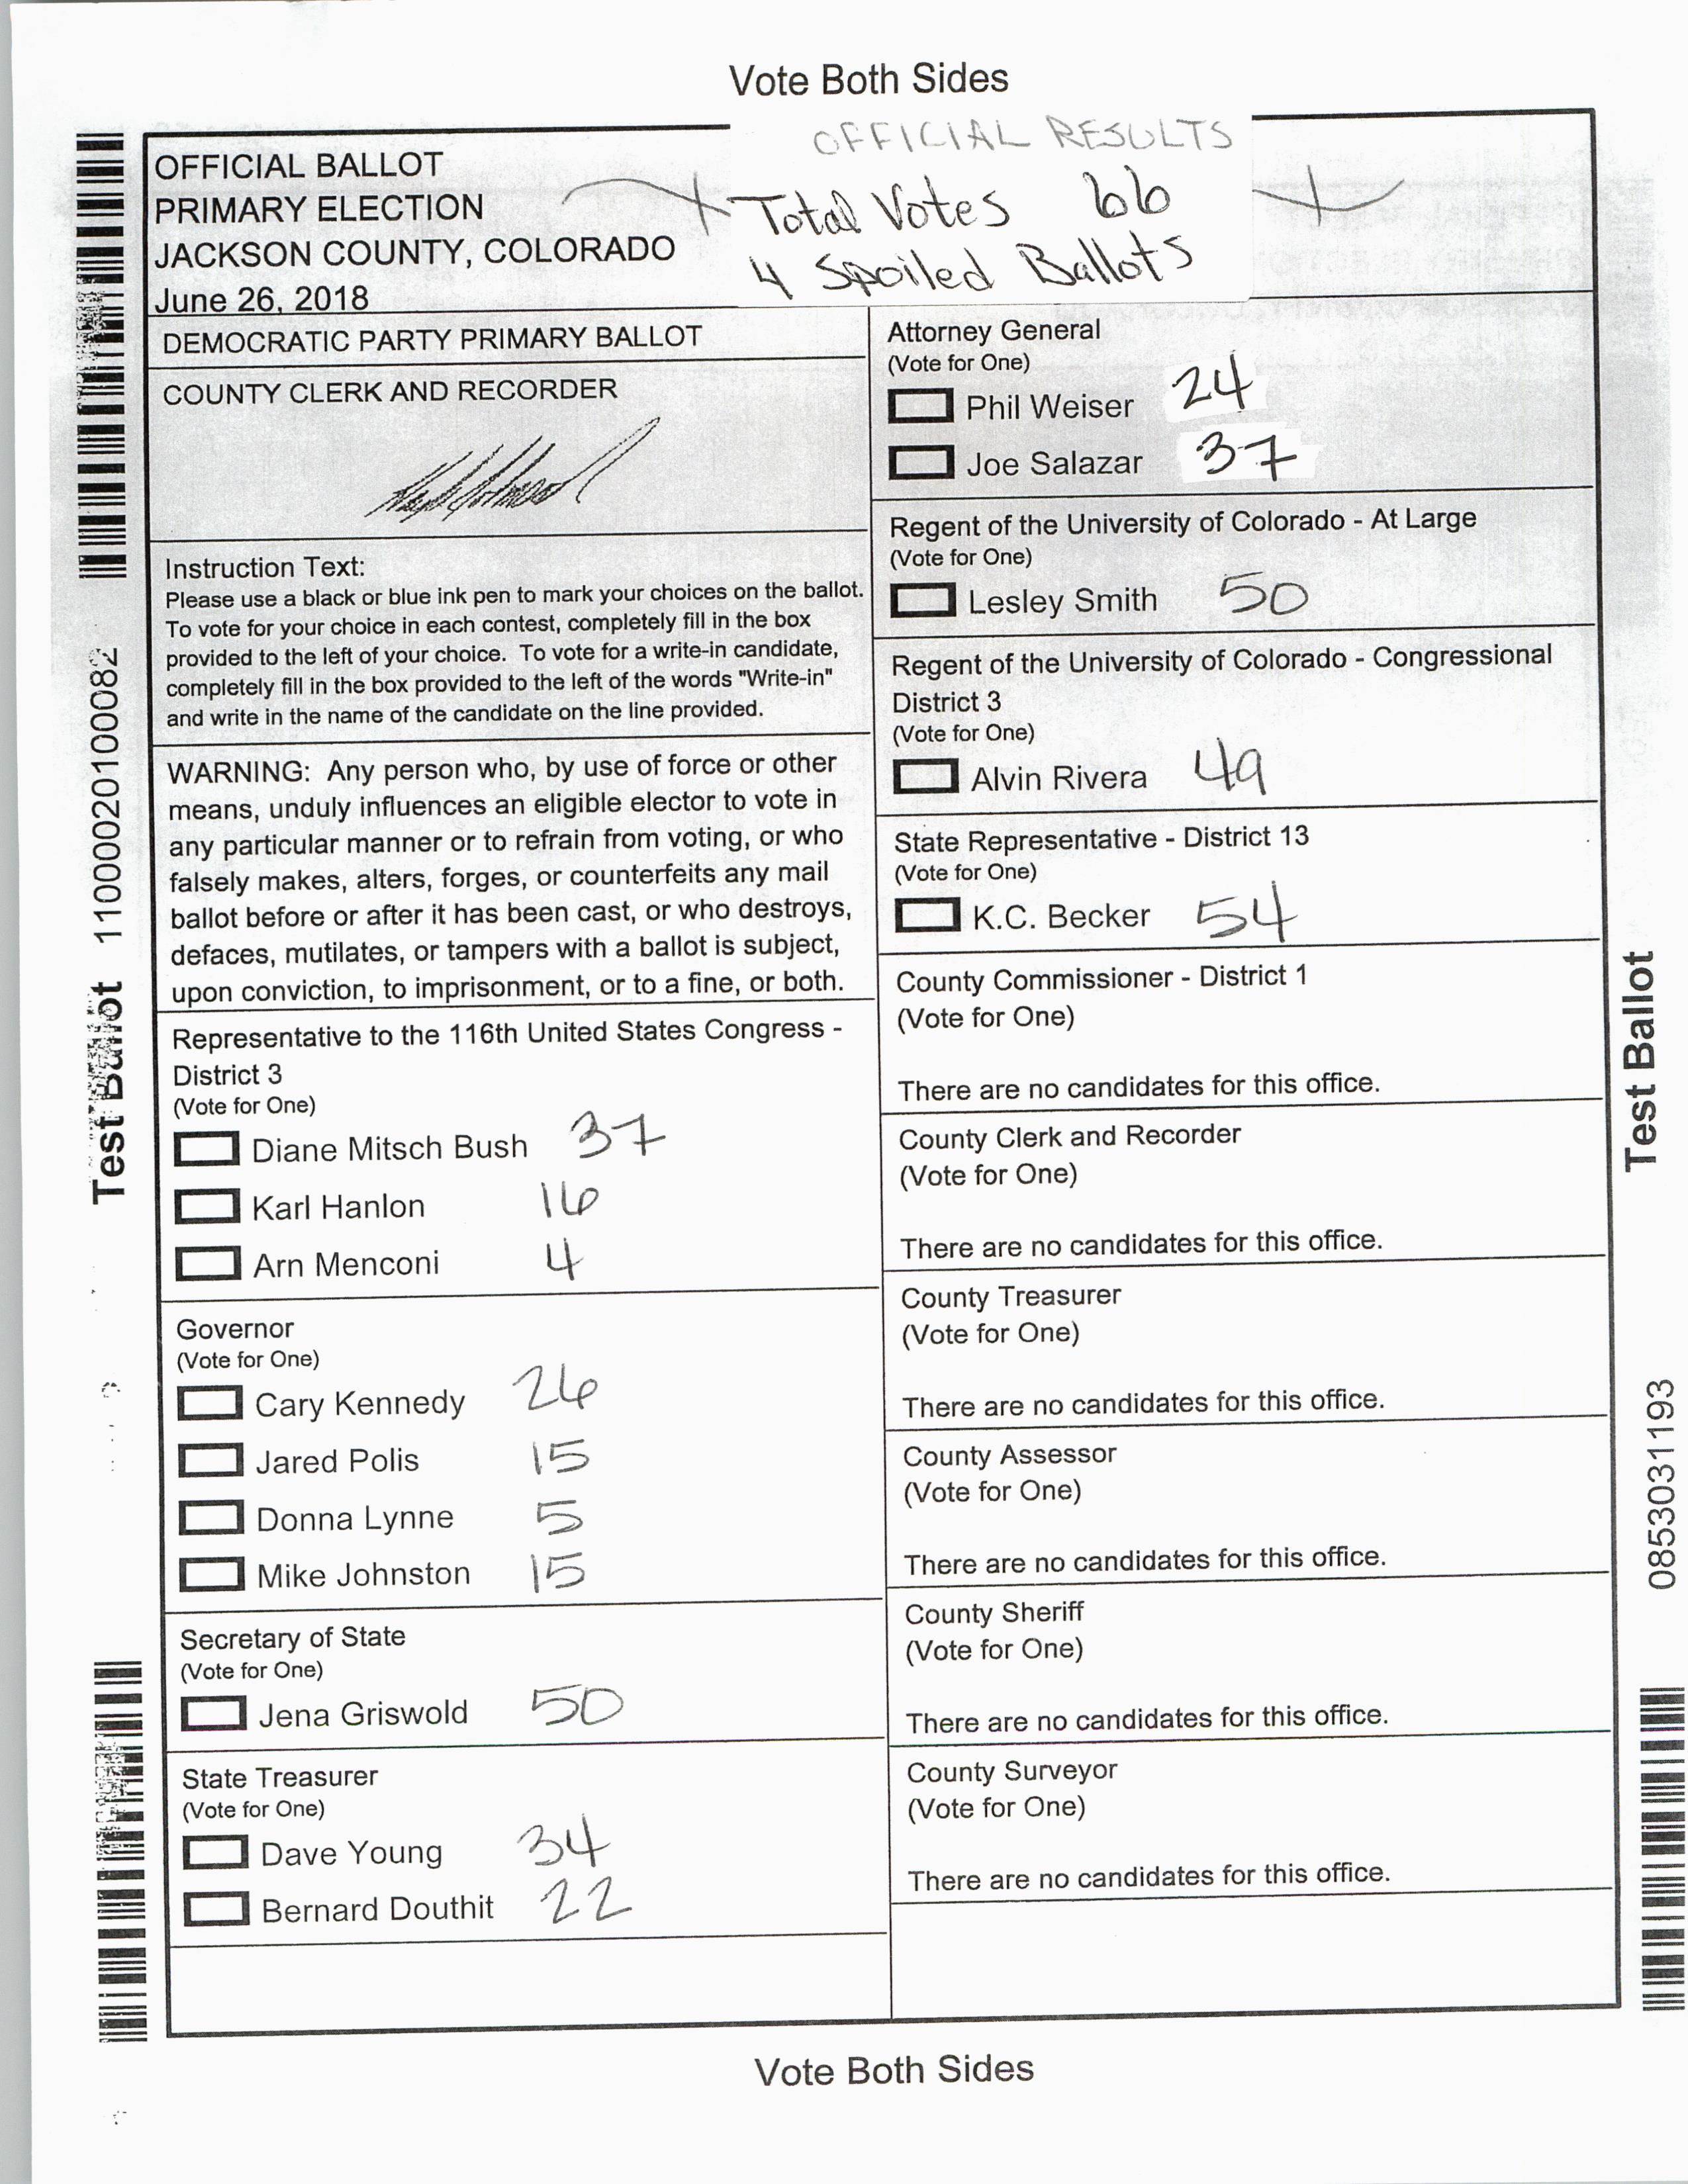 Vote Both Sides
OFFICIAL RESULTS
Total Votes 66
4 Spoiled Ballots
OFFICIAL BALLOT
PRIMARY ELECTION
JACKSON COUNTY, COLORADO
June 26, 2018
DEMOCRATIC PARTY PRIMARY BALLOT
COUNTY CLERK AND RECORDER
Instruction Text:
Please use a black or blue ink pen to mark your choices on the ballot.
To vote for your choice in each contest, completely fill in the box
provided to the left of your choice. To vote for a write-in candidate,
completely fill in the box provided to the left of the words "Write-in"
and write in the name of the candidate on the line provided.
WARNING: Any person who, by use of force or other
means, unduly influences an eligible elector to vote in
any particular manner or to refrain from voting, or who
falsely makes, alters, forges, or counterfeits any mail
ballot before or after it has been cast, or who destroys,
defaces, mutilates, or tampers with a ballot is subject,
upon conviction, to imprisonment, or to a fine, or both.
Representative to the 116th United States Congress -
District 3
(Vote for One)
Diane Mitsch Bush 37
Karl Hanlon 16
Arn Menconi 4
Governor
(Vote for One)
Cary Kennedy 26
Jared Polis 15
Donna Lynne 5
Mike Johnston 15
Secretary of State
(Vote for One)
Jena Griswold 50
State Treasurer
(Vote for One)
Dave Young 34
Bernard Douthit 22
Attorney General
(Vote for One)
Phil Weiser 24
Joe Salazar 37
Regent of the University of Colorado - At Large
(Vote for One)
Lesley Smith 50
Regent of the University of Colorado - Congressional
District 3
(Vote for One)
Alvin Rivera 49
State Representative - District 13
(Vote for One)
K.C. Becker 54
County Commissioner - District 1
(Vote for One)
There are no candidates for this office.
County Clerk and Recorder
(Vote for One)
There are no candidates for this office.
County Treasurer
(Vote for One)
There are no candidates for this office.
County Assessor
(Vote for One)
There are no candidates for this office.
County Sheriff
(Vote for One)
There are no candidates for this office.
County Surveyor
(Vote for One)
There are no candidates for this office.
Vote Both Sides
Test Ballot 11000020100082
Test Ballot
0853031193